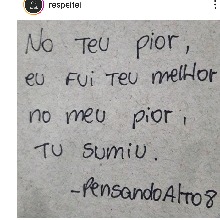 respeitei
No TEU PIOR,
EU FUI TEU MELHOR
NO MEU PIOR,
TU SUMIU.
-PENSANDOALTO8